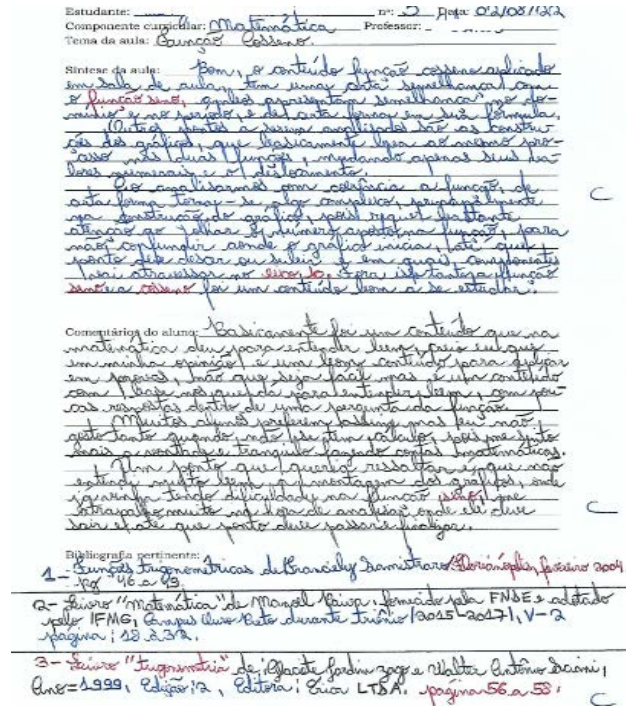 Estudante: nº: 5 Data: 02/08/22
Componente curricular: Matemática Professor:
Tema da aula: Função Cosseno.
Síntese da aula: Bom, o conteúdo função cosseno aplicado
em sala de aula, tem uma certa semelhança com
o função seno, ambos apresentam semelhança no do-
mínio e no período, e de certa forma em sua fórmula.
Outros pontos a serem analisados são as constru-
ções dos gráficos, que basicamente ligam ao mesmo pro-
cesso nas duas funções, mudando apenas seus va-
lores numerais e o deslocamento.
Ao analisarmos com coerência a função, de
certa forma torna-se algo complexo, principalmente
na construção do gráfico, pois requer bastante
atenção ao olhar o número aposto na função, para
não confundir aonde o gráfico inicia, até que
ponto deve descer ou subir e em quais componentes
vai atravessar no eixo, . Fora isto tanto a função
seno e a cosseno foi um conteúdo bom a se estudar.
Comentários do aluno: Basicamente foi um conteúdo que na
matemática deu para entender bem, creio eu que
em minha opinião é um bom conteúdo para aplicar
em provas, não que seja fácil mas é um conteúdo
com base nos que dá para entender bem, com pou-
cas respostas dentro de uma pergunta da função.
Muitos alunos preferem assim, mas eu não
gosto tanto quando não se tem cálculo, pois me sinto
mais a vontade e tranquilo fazendo contas matemáticas.
Um ponto que queria ressaltar é que não
entendi muito bem a montagem dos gráficos, onde
já venho tendo dificuldade na função seno, me
atrapalho muito na hora de analisar onde ele deve
sair e até que ponto deve passar e finalizar.
Bibliografia pertinente:
1- Funções trigonométricas de Franciely Samistraro. Florianópolis, fevereiro 2004
pg 46 a 49.
2- Livro "Matemática" de Manoel Paiva, fornecido pela FNDE e adotado
pelo IFMG, Campus Ouro Preto durante triênio /2015-2017/, V-2
página: 18 a 32.
3- Livro "trigonometria" de: Glacete Jardim Zago e Walter Antônio Sciani,
Ano=1999, Edição: 2, Editora: Érica LTDA. página 56 a 58.